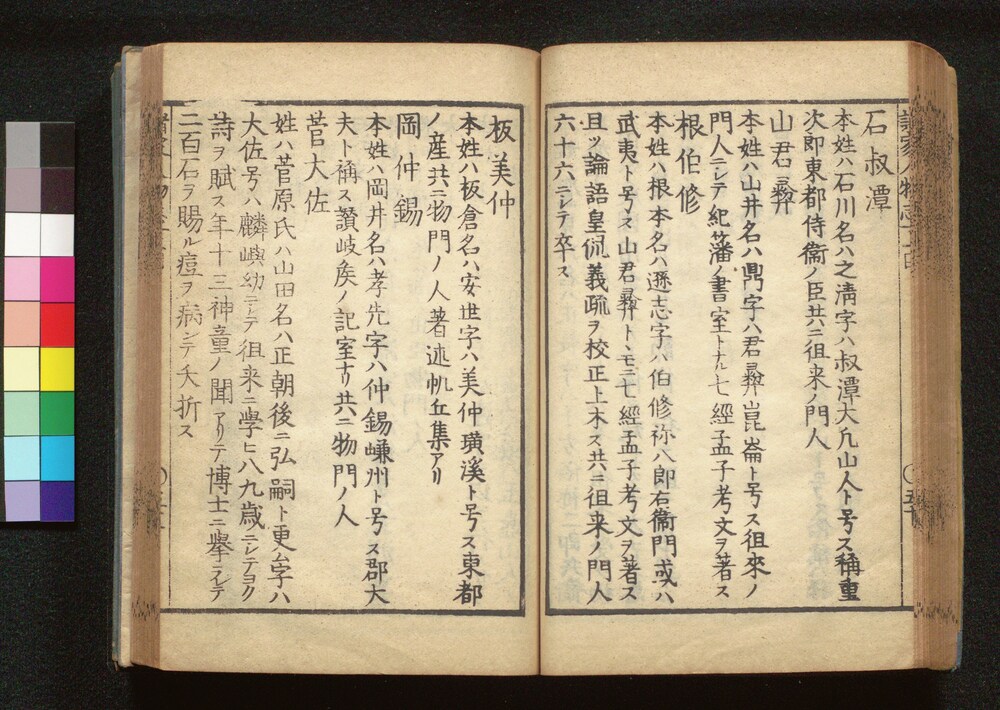 石叔潭
本姓ハ石川名ハ之清字ハ叔潭大凡山人ト号ス稱重
次即東都侍衞ノ臣共ニ徂来ノ門人
山君彜
本姓ハ山井名ハ鼎字ハ君彜崑崙ト号ス徂來ノ
門人ニシテ紀藩ノ書室トナル七經孟子考文ヲ著ス
根伯修
本姓ハ根本名ハ遜志字ハ伯修称八郎右衞門或ハ
武夷ト号ス山君彜トトモニ七經孟子考文ヲ著ス
且ツ論語皇侃義疏ヲ校正上木ス共ニ徂来ノ門人
六十六ニシテ卒ス
板美仲
本姓ハ板倉名ハ安世字ハ美仲璜溪ト号ス東都
ノ産共ニ物門ノ人著述帆丘集アリ
岡仲錫
本姓ハ岡井名ハ孝先字ハ仲錫嵰州ト号ス郡大
夫ト稱ス讃岐矦ノ記室ナリ共ニ物門ノ人
菅大佐
姓ハ菅原氏ハ山田名ハ正朝後ニ弘嗣ト更ム字ハ
大佐号ハ麟嶼幼ニシテ徂来ニ學ヒ八九歳ニシテヨク
詩ヲ賦ス年十三神童ノ聞アリテ博士ニ擧ラレテ
二百石ヲ賜ル痘ヲ病ンテ夭折ス